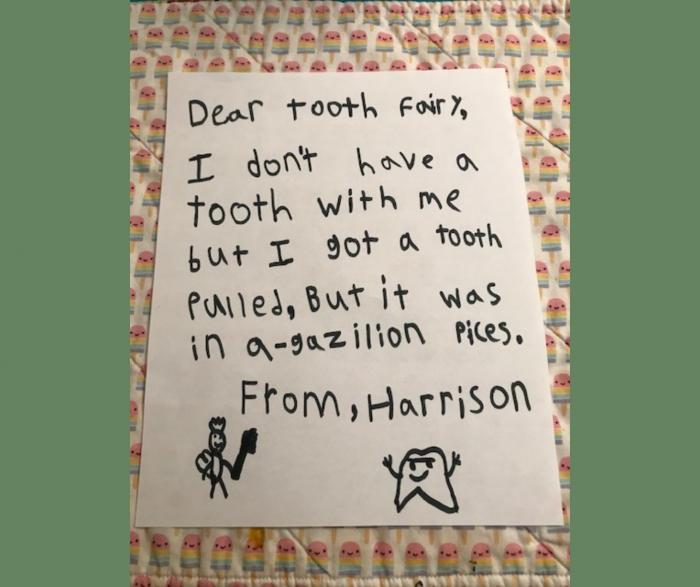 Dear tooth fairy,
I don't have a
tooth with me
but I got a tooth
pulled, But it was
in a-gazilion pices.
From, Harrison